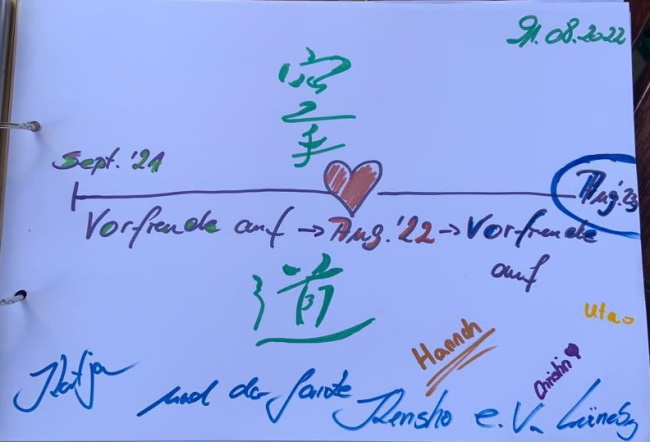 21.08.2022
空
手
Sept. '21
Aug '23
Vorfreude auf → Aug. '22 → Vorfreude
auf
道
Uta
Hannah
Christin
Katja
und der ganze Kensho e.V. Lüneb